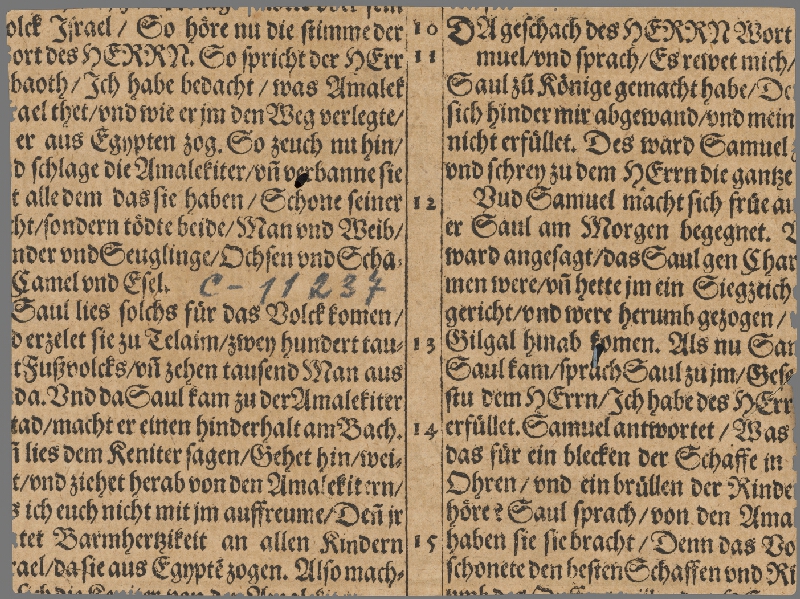 olck Jſrael / So höre nu die ſtimme der
ort des HERRN. So ſpricht der HErr
baoth / Jch habe bedacht / was Amalek
rael thet/vnd wie er jm den Weg verlegte/
er aus Egypten zog. So zeuch nu hin/
d ſchlage die Amalekiter/vn̄ verbanne ſie
t alle dem das ſie haben / Schone ſeiner
cht/ſondern tödte beide/Man vnd Weib/
nder vnd Seuglinge/Ochſen vnd Scha-
Camel vnd Eſel.
C-11237
Saul lies ſolchs für das Volck komen/
d erzelet ſie zu Telaim/zwey hundert tau-
t Fußvolcks/vn̄ zehen tauſend Man aus
da. Vnd da Saul kam zu der Amalekiter
tad/macht er einen hinderhalt am Bach.
n̄ lies dem Keniter ſagen/Gehet hin/wei-
t/vnd ziehet herab von den Amalekitern/
s ich euch nicht mit jm auffreume/Den̄ jr
atet Barmhertzikeit an allen Kindern
rael/da ſie aus Egyptē zogen. Alſo mach-
10
11
12
13
14
15
DA geſchach des HERRN Wort
muel/vnd ſprach/Es rewet mich/
Saul zū Könige gemacht habe/De
ſich hinder mir abgewand/vnd mein
nicht erfüllet. Des ward Samuel
vnd ſchrey zu dem HErrn die gantze
Vud Samuel macht ſich früe au
er Saul am Morgen begegnet. V
ward angeſagt/das Saul gen Char
men were/vn̄ hette jm ein Siegzeich
gericht/vnd were herumb gezogen/
Gilgal hinab komen. Als nu Sam
Saul kam/ſprach Saul zu jm/Geſe
ſtu dem HErrn/Jch habe des HErr
erfüllet. Samuel antwortet / Was
das für ein blecken der Schaffe in
Ohren / vnd ein brüllen der Rinde
höre? Saul ſprach/von den Ama
haben ſie ſie bracht / Denn das Vo
ſchonete den beſten Schaffen vnd Ri